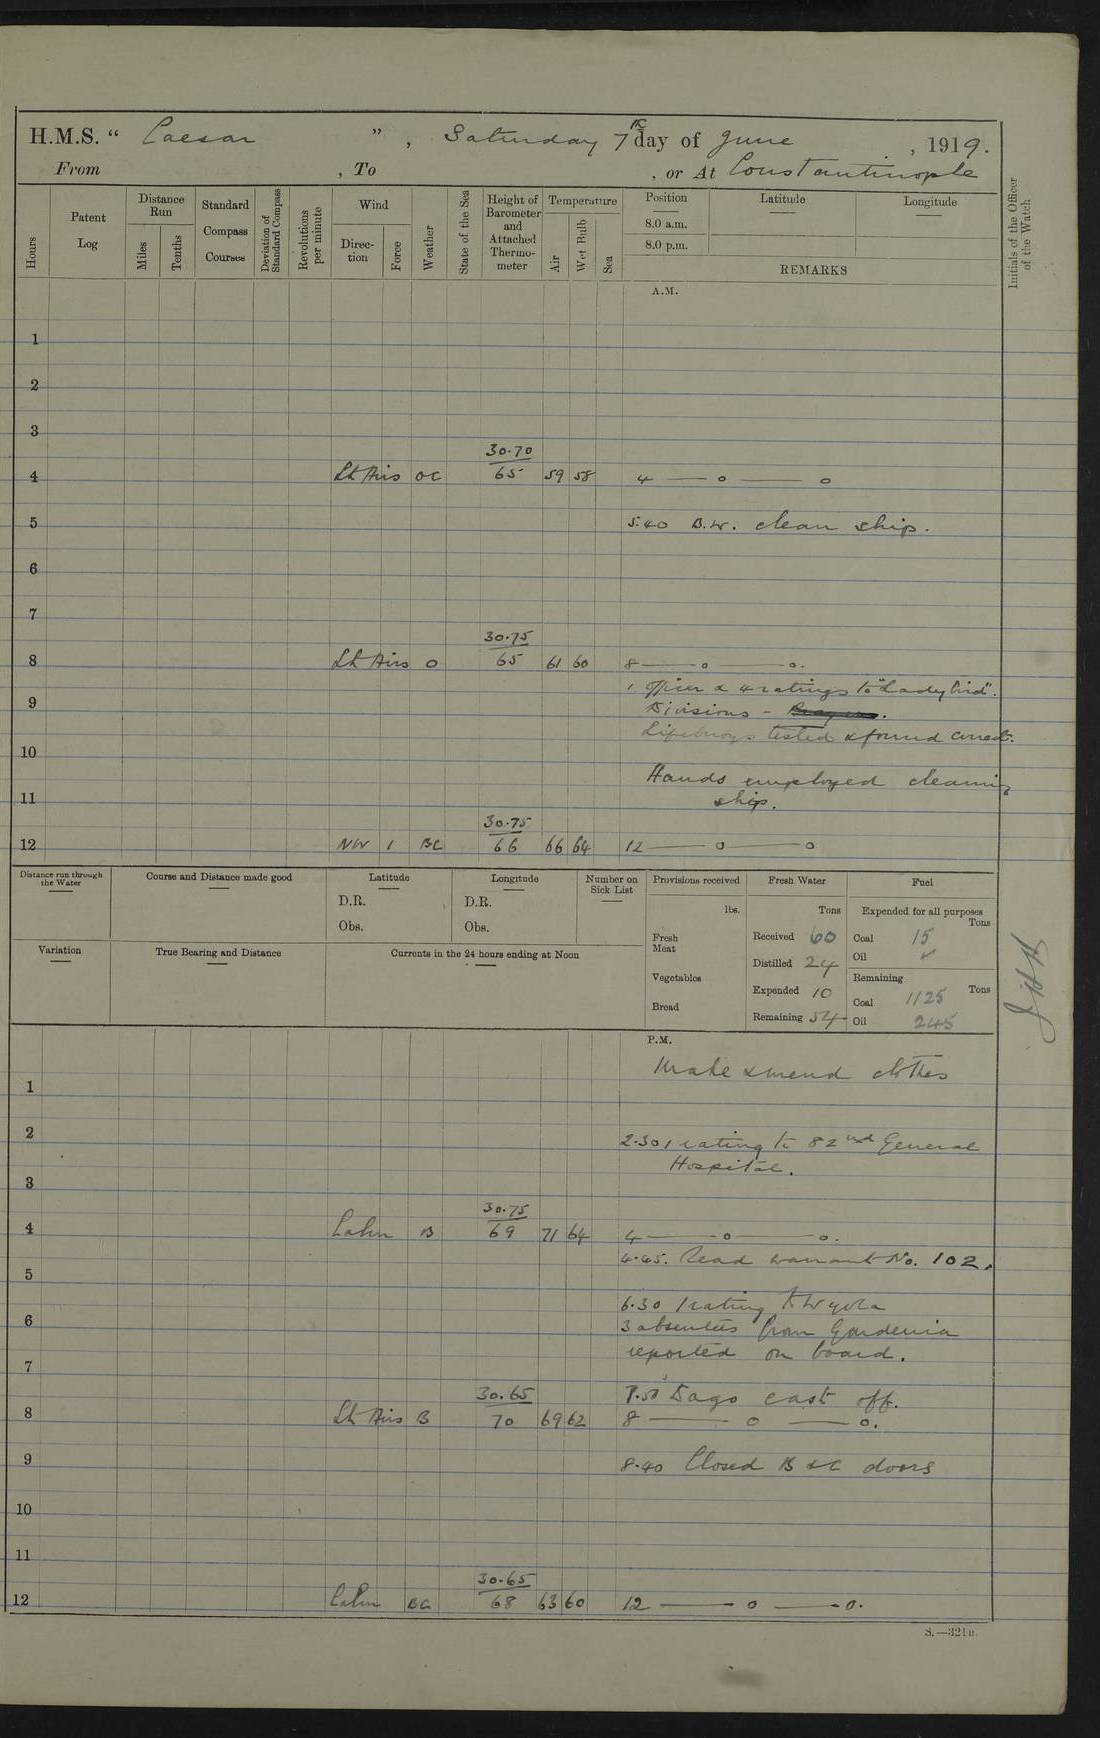 H.M.S. " Caesar ", Saturday 7th day of June, 1919.
From , To , or At Constantinople
Hours
Patent Log
Distance Run
Miles
Tenths
Standard Compass Courses
Deviation of Standard Compass
Revolutions per minute
Wind
Direc-tion
Force
Weather
State of the Sea
Height of Barometer and Attached Thermo-meter
Temperature
Air
Wet Bulb
Sea
Position
8.0 a.m.
8.0 p.m.
Latitude
Longitude
REMARKS
Initials of the Officer of the Watch
A.M.
1
2
3
30.70
4 Lt Airs OC 65 59 58 4 — o — o
5 5.40 B.W. clean ship.
6
7
30.75
8 Lt Airs O 65 61 60 8 — o — o.
1 officer & 4 ratings to "Ladybird".
9 Divisions -
Lifebuoys tested & found correct.
10
Hands employed cleaning
11 ship.
30.75
12 NW 1 BC 66 66 64 12 — o — o
Distance run through the Water
Course and Distance made good
Latitude
D.R.
Obs.
Longitude
D.R.
Obs.
Number on Sick List
Variation
True Bearing and Distance
Currents in the 24 hours ending at Noon
Provisions received
lbs.
Fresh Meat
Vegetables
Bread
Fresh Water
Tons
Received 60
Distilled 24
Expended 10
Remaining 54
Fuel
Expended for all purposes
Tons
Coal 15
Oil ✓
Remaining
Tons
Coal 1125
Oil 245
P.M.
Make & mend clothes
1
2 2.30 1 rating to 82nd General
Hospital.
3
30.75
4 Calm B 69 71 64 4 — o — o.
4.45. Read warrant No. 102.
5
6.30 1 rating
6 3 absentees from Gardenia
reported on board.
7
30.65 Dago cast off.
8 Lt Airs B 70 69 62 8 — o — o.
9 8.40 Closed B & C doors
10
11
30.65
12 Calm BC 68 63 60 12 — o — o.
S.—321B.